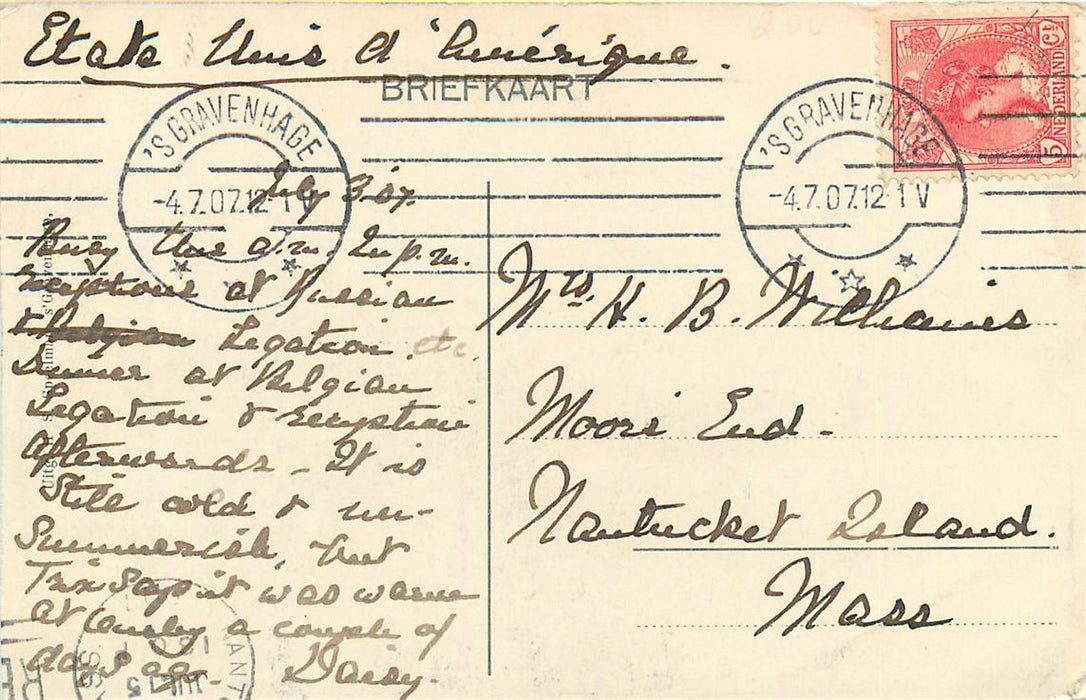 Etats Unis d'Amérique.
BRIEFKAART
'S GRAVENHAGE
-4.7.07.12-1 V
'S GRAVENHAGE
-4.7.07.12-1 V
5 NEDERLAND Ct
July 3. 07.
Busy this a.m. In p.m.
receptions at Russian
& Belgian Legation. etc.
Dinner at Belgian
Legation & reception
afterwards - It is
still cold & un-
summerish, but
Trix says it was warm
at a couple of
days ago. Daisy.
Mrs. H. B. Williams
Moors End -
Nantucket Island.
Mass